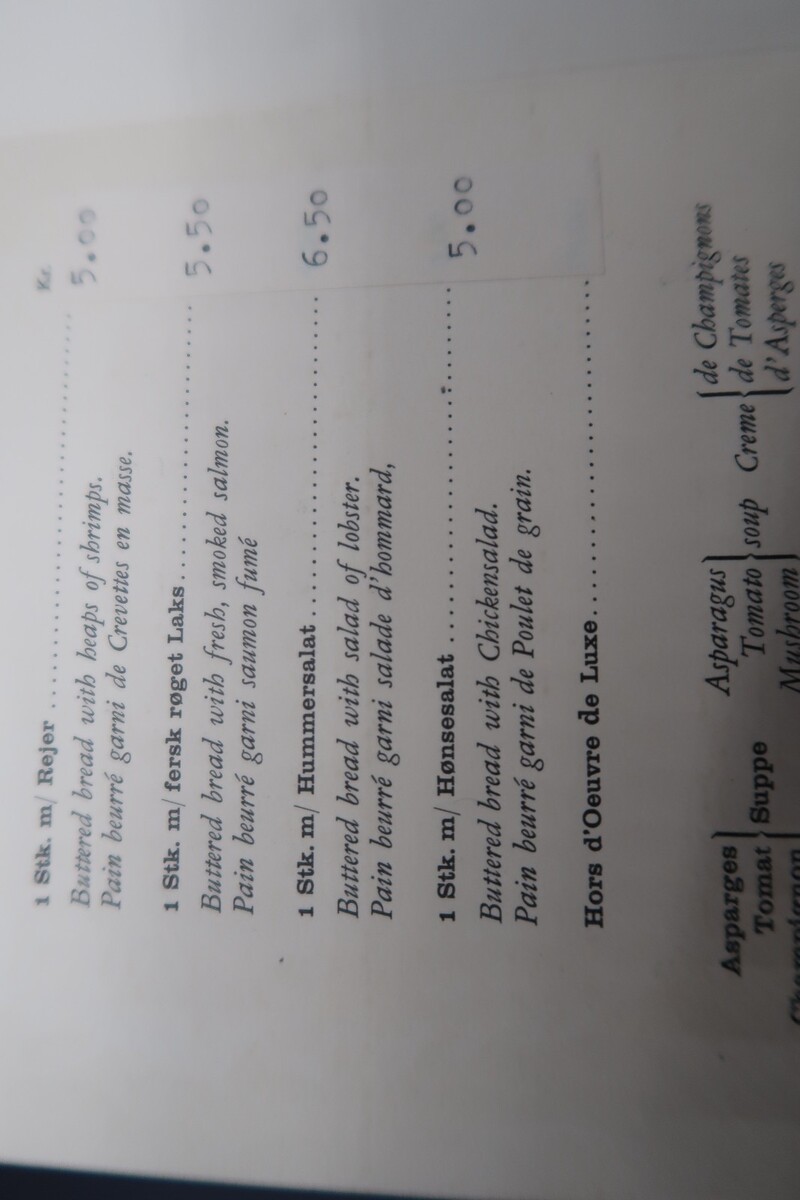 Kr.
1 Stk. m/ Rejer .......................................... 5.00
Buttered bread with heaps of shrimps.
Pain beurré garni de Crevettes en masse.
1 Stk. m/ fersk røget Laks............................ 5.50
Buttered bread with fresh, smoked salmon.
Pain beurré garni saumon fumé
1 Stk. m/ Hummersalat ................................ 6.50
Buttered bread with salad of lobster.
Pain beurré garni salade d'hommard,
1 Stk. m/ Hønsesalat .................................... 5.00
Buttered bread with Chickensalad.
Pain beurré garni de Poulet de grain.
Hors d'Oeuvre de Luxe..................................
Asparges } Asparagus } { de Champignons
Tomat } Suppe Tomato } soup Creme { de Tomates
Champignon } Mushroom } { d'Asperges